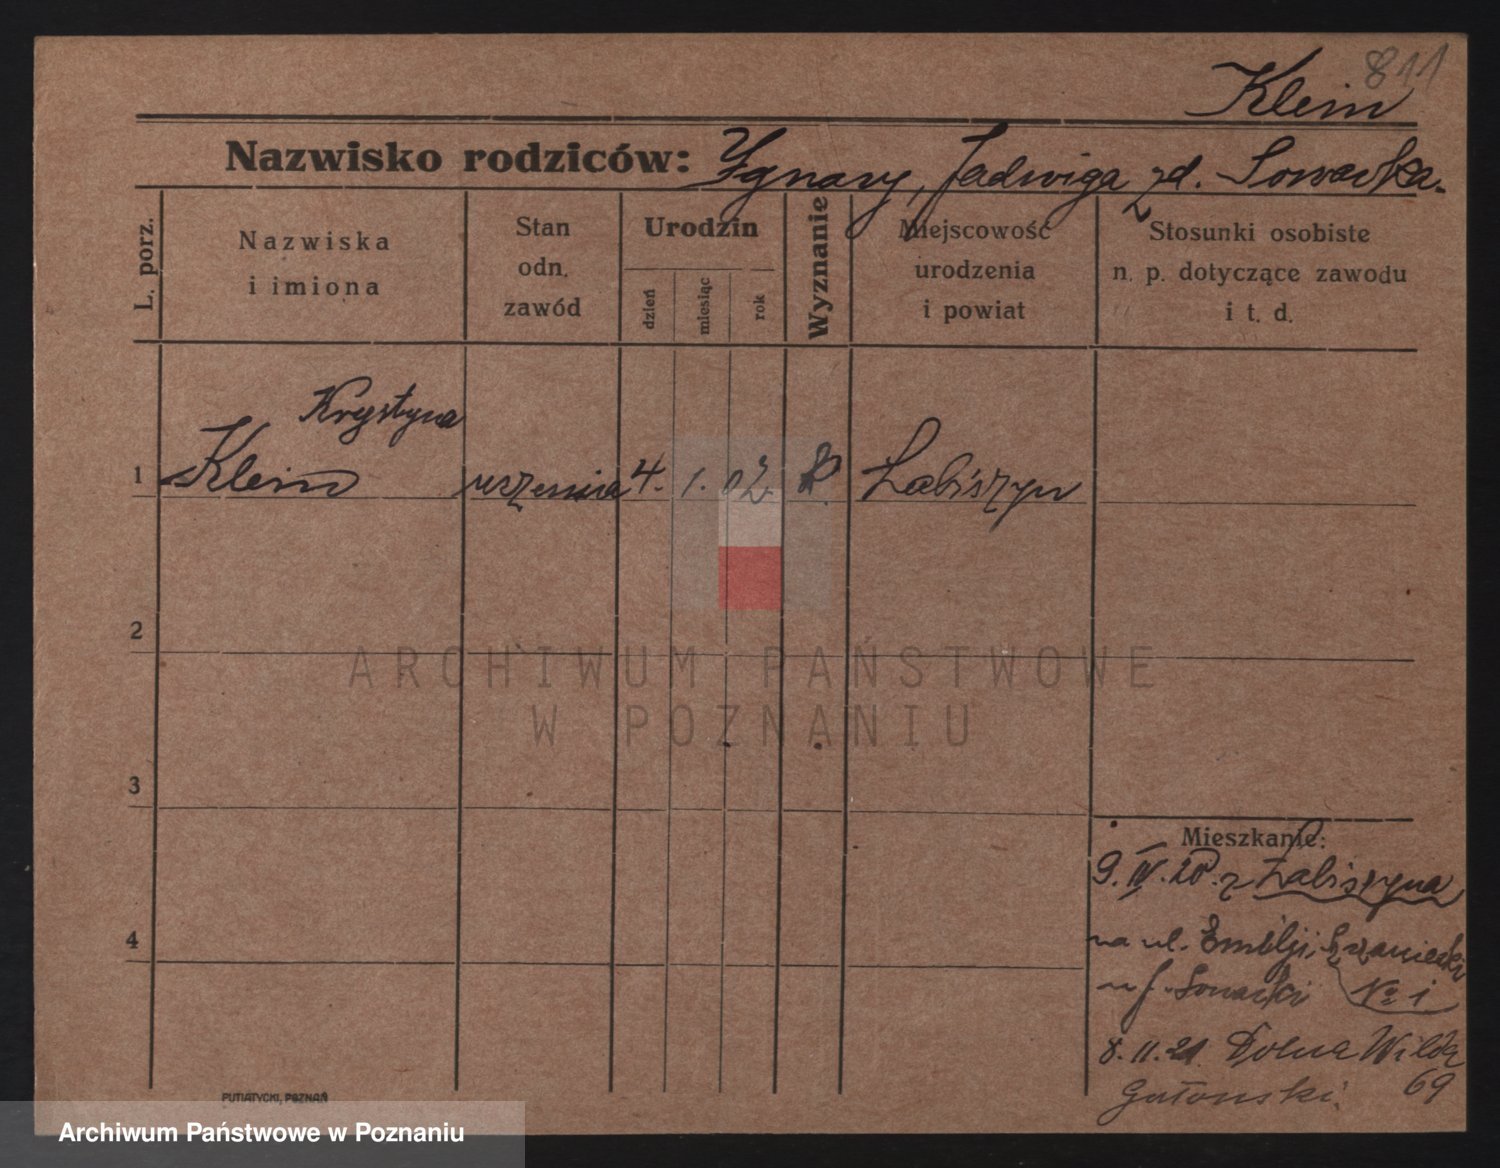 811
Klein
Nazwisko rodziców: Ygnacy, Jadwiga zd. Sowacka.
L. porz.
Nazwiska
i imiona
Stan
odn.
zawód
Urodzin
dzień
miesiąc
rok
Wyznanie
Miejscowość
urodzenia
i powiat
Stosunki osobiste
n. p. dotyczące zawodu
i t. d.
Krystyna
1 Klein uczenica 4. 1. 02 Łabiszyn
2
ARCHIWUM PAŃSTWOWE
W POZNANIU
3
Mieszkanie:
9. IV. 20. z Łabiszyna
4
na ul. Emilji Szczanieckiej
u J. Sowacki No 1
8. 11. 21. Dolna Wilda
69
PUTIATYCKI, POZNAŃ
Archiwum Państwowe w Poznaniu